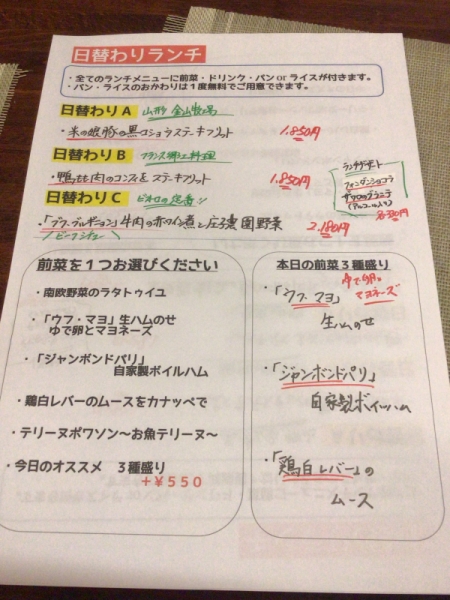 日替わりランチ
・全てのランチメニューに前菜・ドリンク・パン or ライスが付きます。
・パン・ライスのおかわりは1度無料でご用意できます。
日替わり A 山形 金山牧場
・米の娘豚の黒コショウステーキフリット 1.850円
日替わり B フランス郷土料理
・鴨もも肉のコンフィとステーキフリット 1.850円
日替わり C ビストロの定番!!
・「ブフ・ブルギニョン」牛肉の赤ワイン煮と 園野菜 2.180円
ビーフシチュー
ランチデザート
フォンダンショコラ
(アルコール入り)
前菜を1つお選びください
・南欧野菜のラタトゥイユ
・「ウフ・マヨ」生ハムのせ
ゆで卵とマヨネーズ
・「ジャンボンドパリ」
自家製ボイルハム
・鶏白レバーのムースをカナッペで
・テリーヌポワソン～お魚テリーヌ～
・今日のオススメ 3種盛り
+¥550
本日の前菜3種盛り
・「ウフ・マヨ」 ゆで卵。マヨネーズ
生ハムのせ
・「ジャンボンドパリ」
自家製ボイルハム
・「鶏白レバー」の
ムース